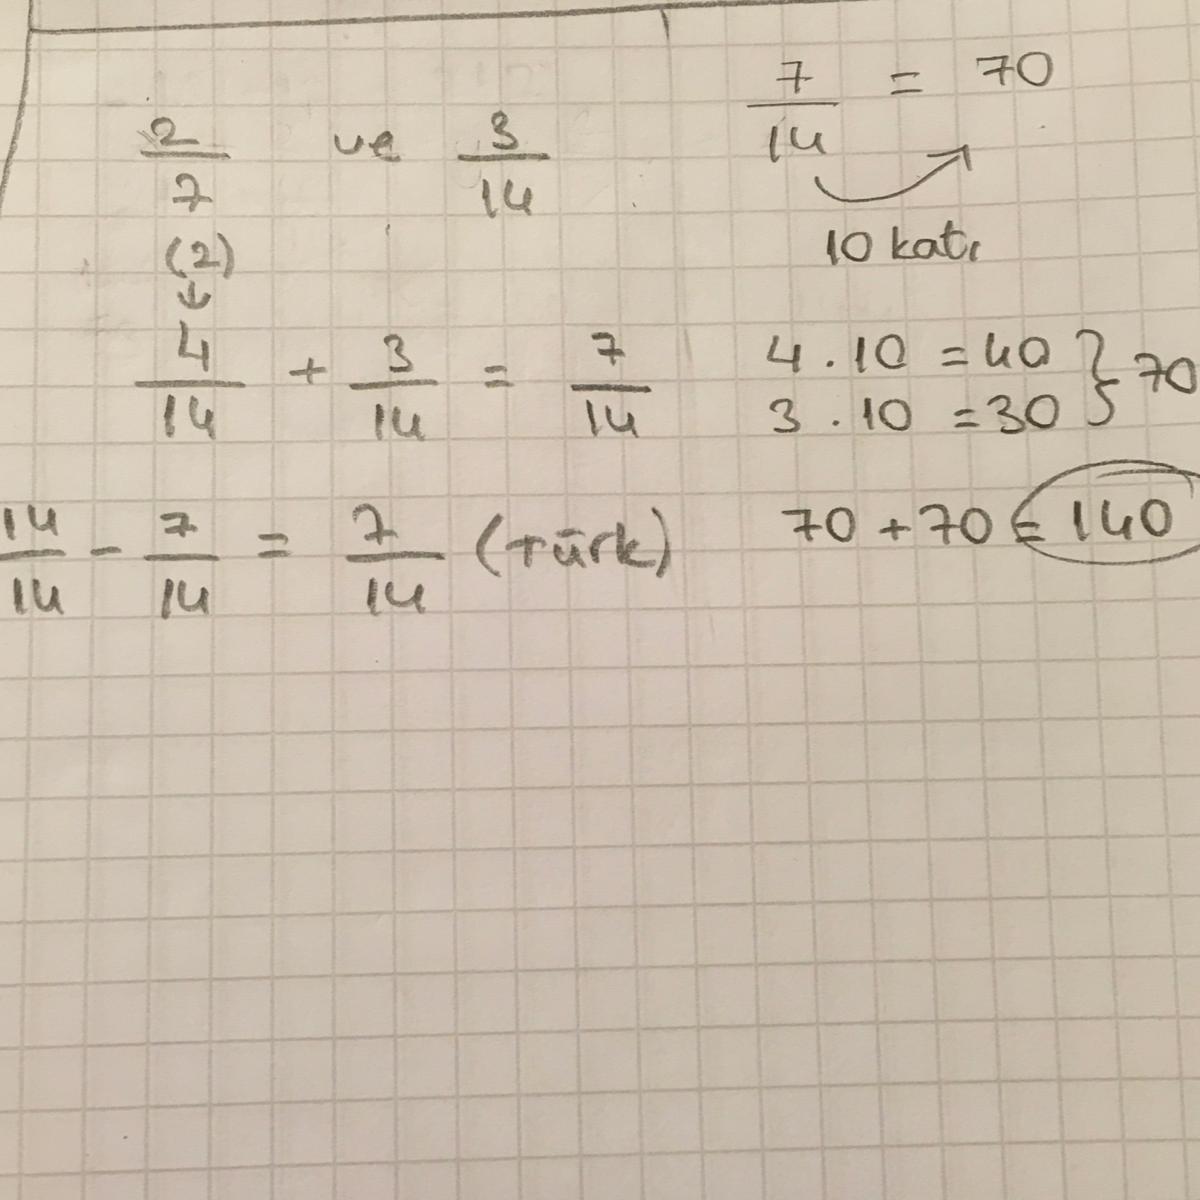 2/7 ve 3/14
(2)
↓
4/14 + 3/14 = 7/14
14/14 - 7/14 = 7/14 (Türk)
7/14 = 70
10 katı
4 . 10 = 40 } 70
3 . 10 = 30
70 + 70 = 140